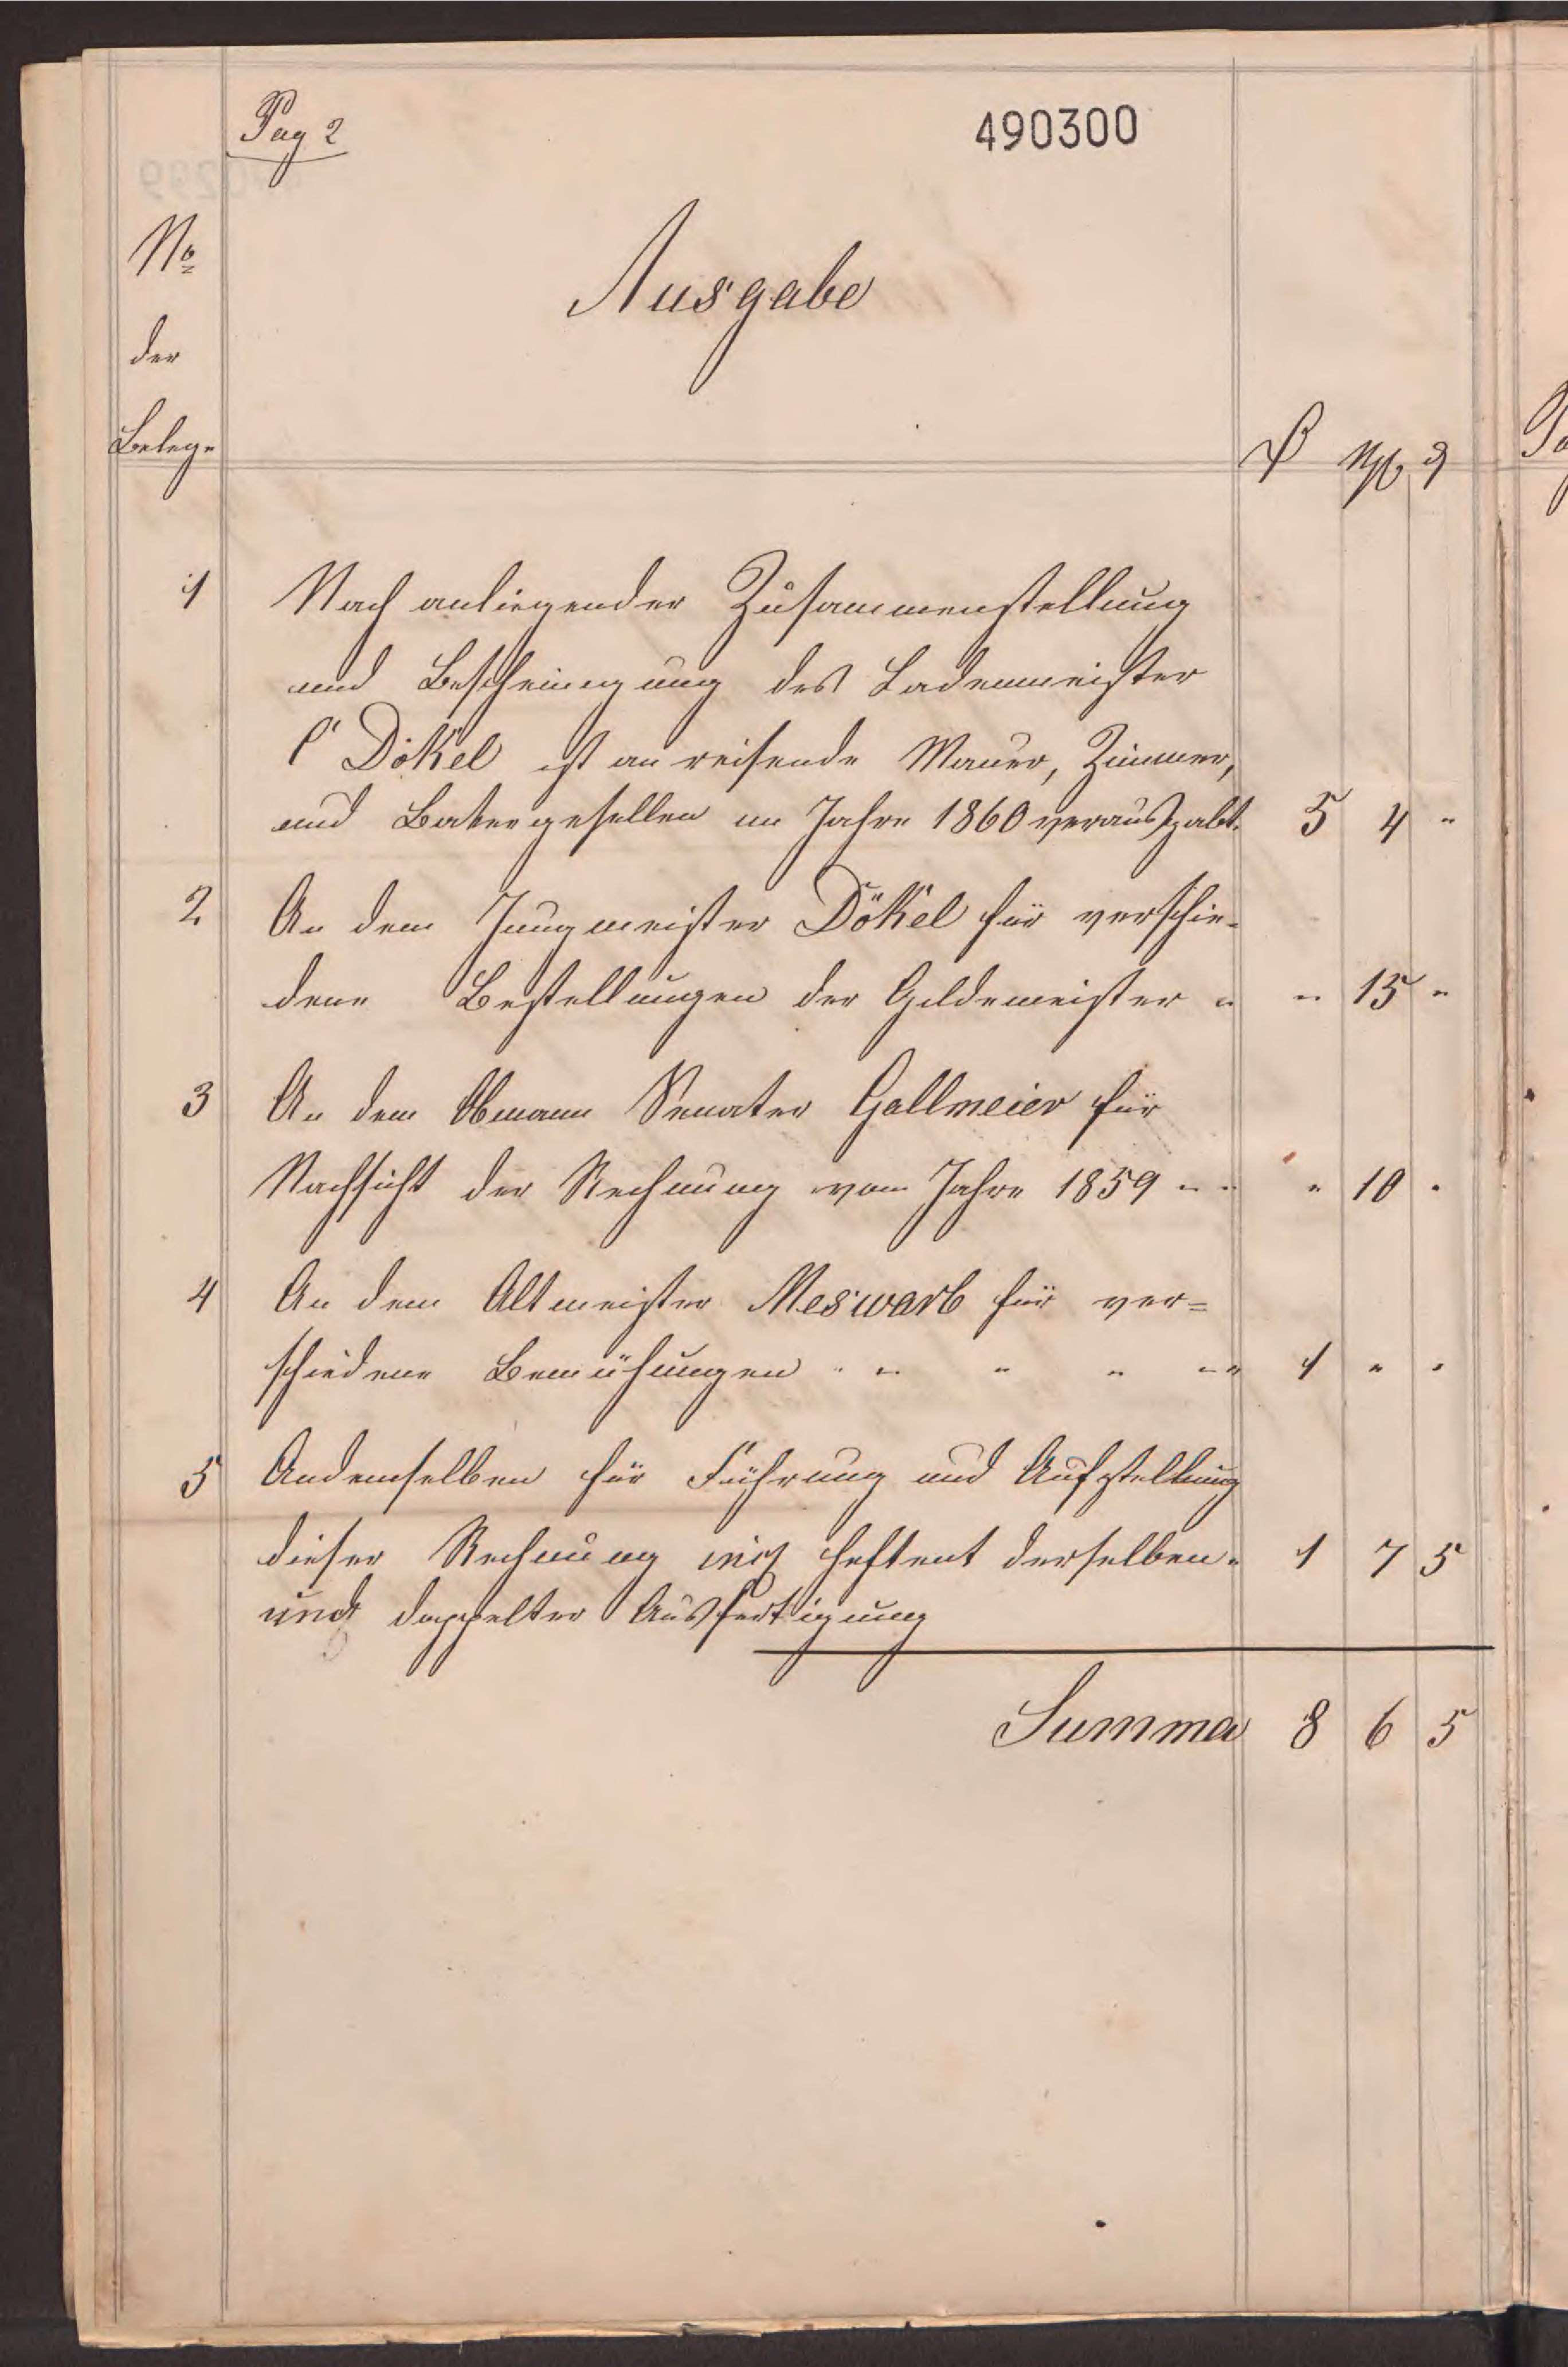 Pag 2
490300
No
der
Belege
Ausgabe
1 Nach anliegender Zusammenstellung
und Bescheinigung des Lademeister
C Dökel ist an reisende Mauer, Zimmer,
und Bakergesellen im Jahre 1860 verauszabt. 5 4 "
2 An dem Jungmeister Dökel für verschie-
dene Bestellungen der Gildemeister " " 15 "
3 An dem Obmann Senator Gallmeier für
Nachsicht der Rechnung vom Jahre 1859 " " " 10 "
4 An dem Altmeister Meswarb für ver=
schiedene Bemühungen " " " " " 1 " "
5 Andemselben für Führung und Aufstellung
dieser Rechnung heftent derselben 1 7 5
und doppelter Ausfertigung
Summa 8 6 5